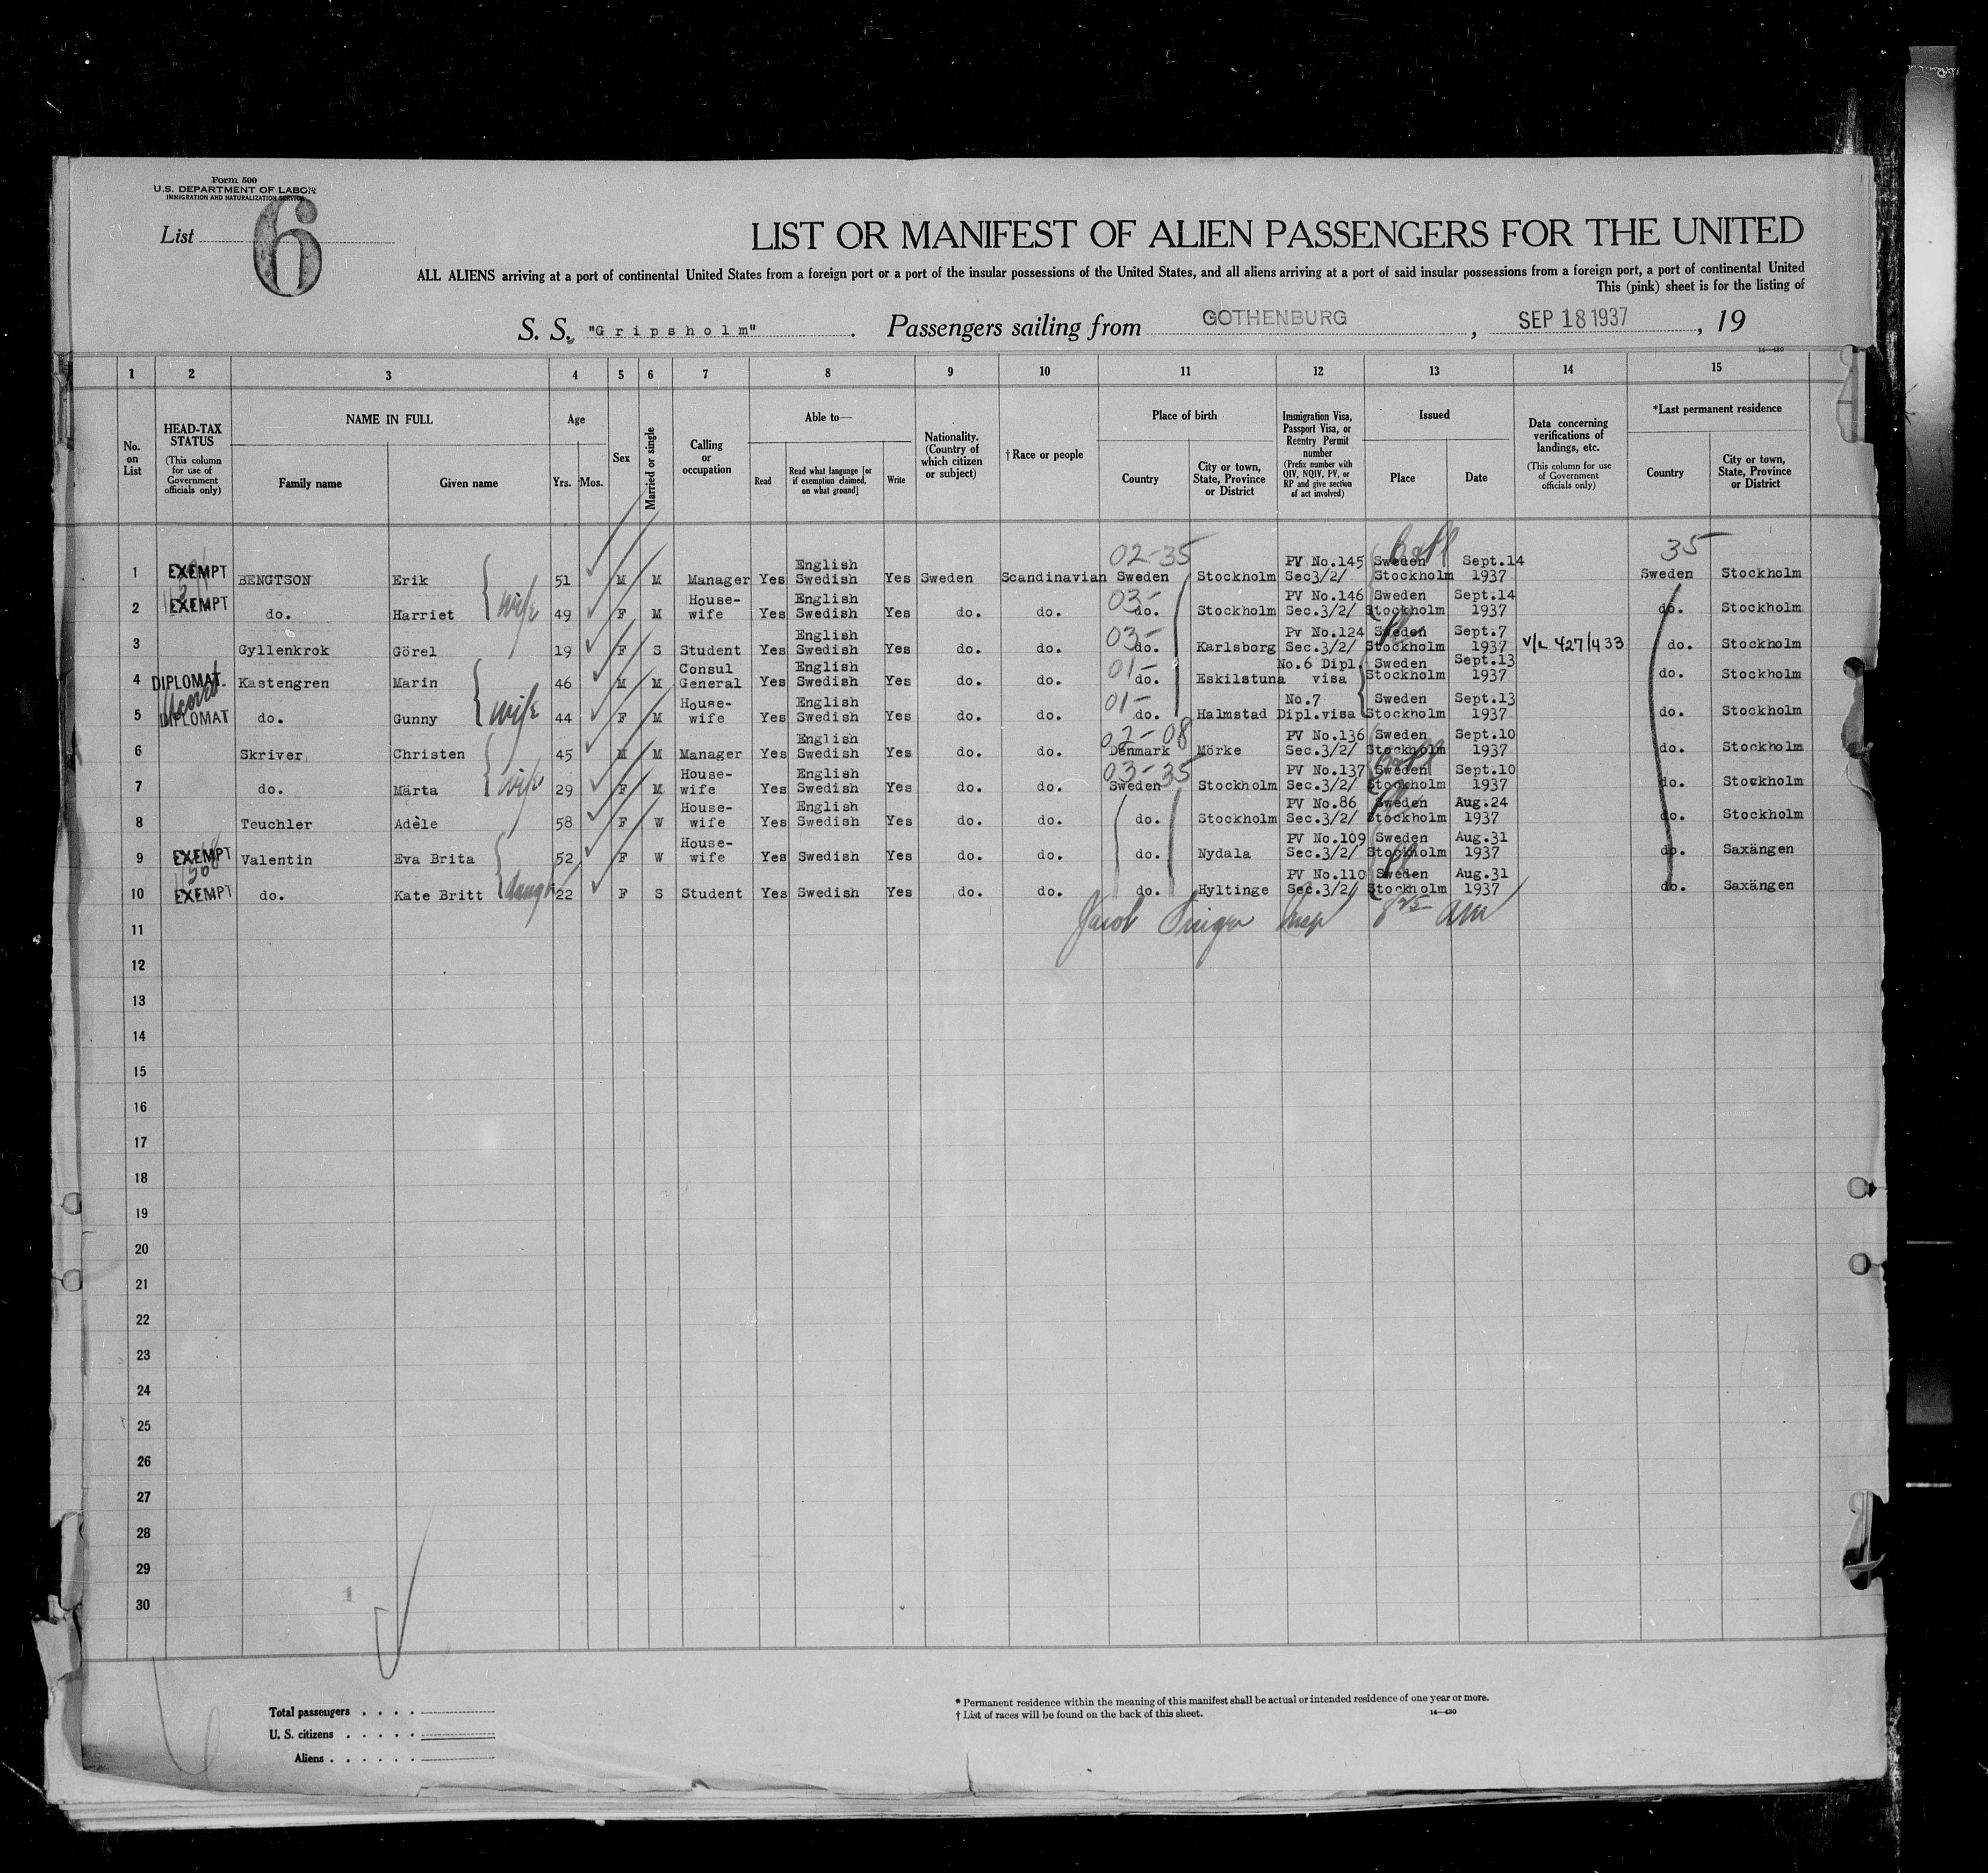 Form 500
U.S. DEPARTMENT OF LABOR
IMMIGRATION AND NATURALIZATION SERVICE
List 6
LIST OR MANIFEST OF ALIEN PASSENGERS FOR THE UNITED
ALL ALIENS arriving at a port of continental United States from a foreign port or a port of the insular possessions of the United States, and all aliens arriving at a port of said insular possessions from a foreign port, a port of continental United
This (pink) sheet is for the listing of
S. S. "Gripsholm" . Passengers sailing from GOTHENBURG , SEP 18 1937 , 19
14—430
1 2 3 4 5 6 7 8 9 10 11 12 13 14 15
No. on List
HEAD-TAX STATUS (This column for use of Government officials only)
NAME IN FULL Family name Given name
Age Yrs. Mos.
Sex
Married or single
Calling or occupation
Able to— Read Read what language [or if exemption claimed, on what ground] Write
Nationality. (Country of which citizen or subject)
†Race or people
Place of birth Country City or town, State, Province or District
Immigration Visa, Passport Visa, or Reentry Permit number (Prefix number with QIV, NQIV, PV, or RP and give section of act involved)
Issued Place Date
Data concerning verifications of landings, etc. (This column for use of Government officials only)
*Last permanent residence Country City or town, State, Province or District
02-35 35
1 EXEMPT BENGTSON Erik 51 M M Manager Yes English Swedish Yes Sweden Scandinavian Sweden Stockholm PV No.145 Sec3/2/ Sweden Stockholm Sept.14 1937 Sweden Stockholm
2 EXEMPT do. Harriet wife 49 F M House-wife Yes English Swedish Yes do. do. 03- do. Stockholm PV No.146 Sec.3/2/ Sweden Stockholm Sept.14 1937 do. Stockholm
3 Gyllenkrok Görel 19 F S Student Yes English Swedish Yes do. do. 03- do. Karlsborg Pv No.124 Sec.3/2/ Sweden Stockholm Sept.7 1937 V/L 427/433 do. Stockholm
4 DIPLOMAT Kastengren Marin 46 M M Consul General Yes English Swedish Yes do. do. 01- do. Eskilstuna No.6 Dipl. visa Sweden Stockholm Sept.13 1937 do. Stockholm
5 DIPLOMAT do. Gunny wife 44 F M House-wife Yes English Swedish Yes do. do. 01- do. Halmstad No.7 Dipl.visa Sweden Stockholm Sept.13 1937 do. Stockholm
6 Skriver Christen 45 M M Manager Yes English Swedish Yes do. do. 02-08 Denmark Mörke PV No.136 Sec.3/2/ Sweden Stockholm Sept.10 1937 do. Stockholm
7 do. Märta wife 29 F M House-wife Yes English Swedish Yes do. do. 03-35 Sweden Stockholm PV No.137 Sec.3/2/ Sweden Stockholm Sept.10 1937 do. Stockholm
8 Teuchler Adèle 58 F W House-wife Yes English Swedish Yes do. do. do. Stockholm PV No.86 Sec.3/2/ Sweden Stockholm Aug.24 1937 do. Stockholm
9 EXEMPT Valentin Eva Brita 52 F W House-wife Yes Swedish Yes do. do. do. Nydala PV No.109 Sec.3/2/ Sweden Stockholm Aug.31 1937 do. Saxängen
10 EXEMPT do. Kate Britt daugh 22 F S Student Yes Swedish Yes do. do. do. Hyltinge PV No.110 Sec.3/2/ Sweden Stockholm Aug.31 1937 do. Saxängen
11 Jacob Singer Insp
12
13
14
15
16
17
18
19
20
21
22
23
24
25
26
27
28
29
30
Total passengers
U. S. citizens
Aliens
* Permanent residence within the meaning of this manifest shall be actual or intended residence of one year or more.
† List of races will be found on the back of this sheet.
14—430